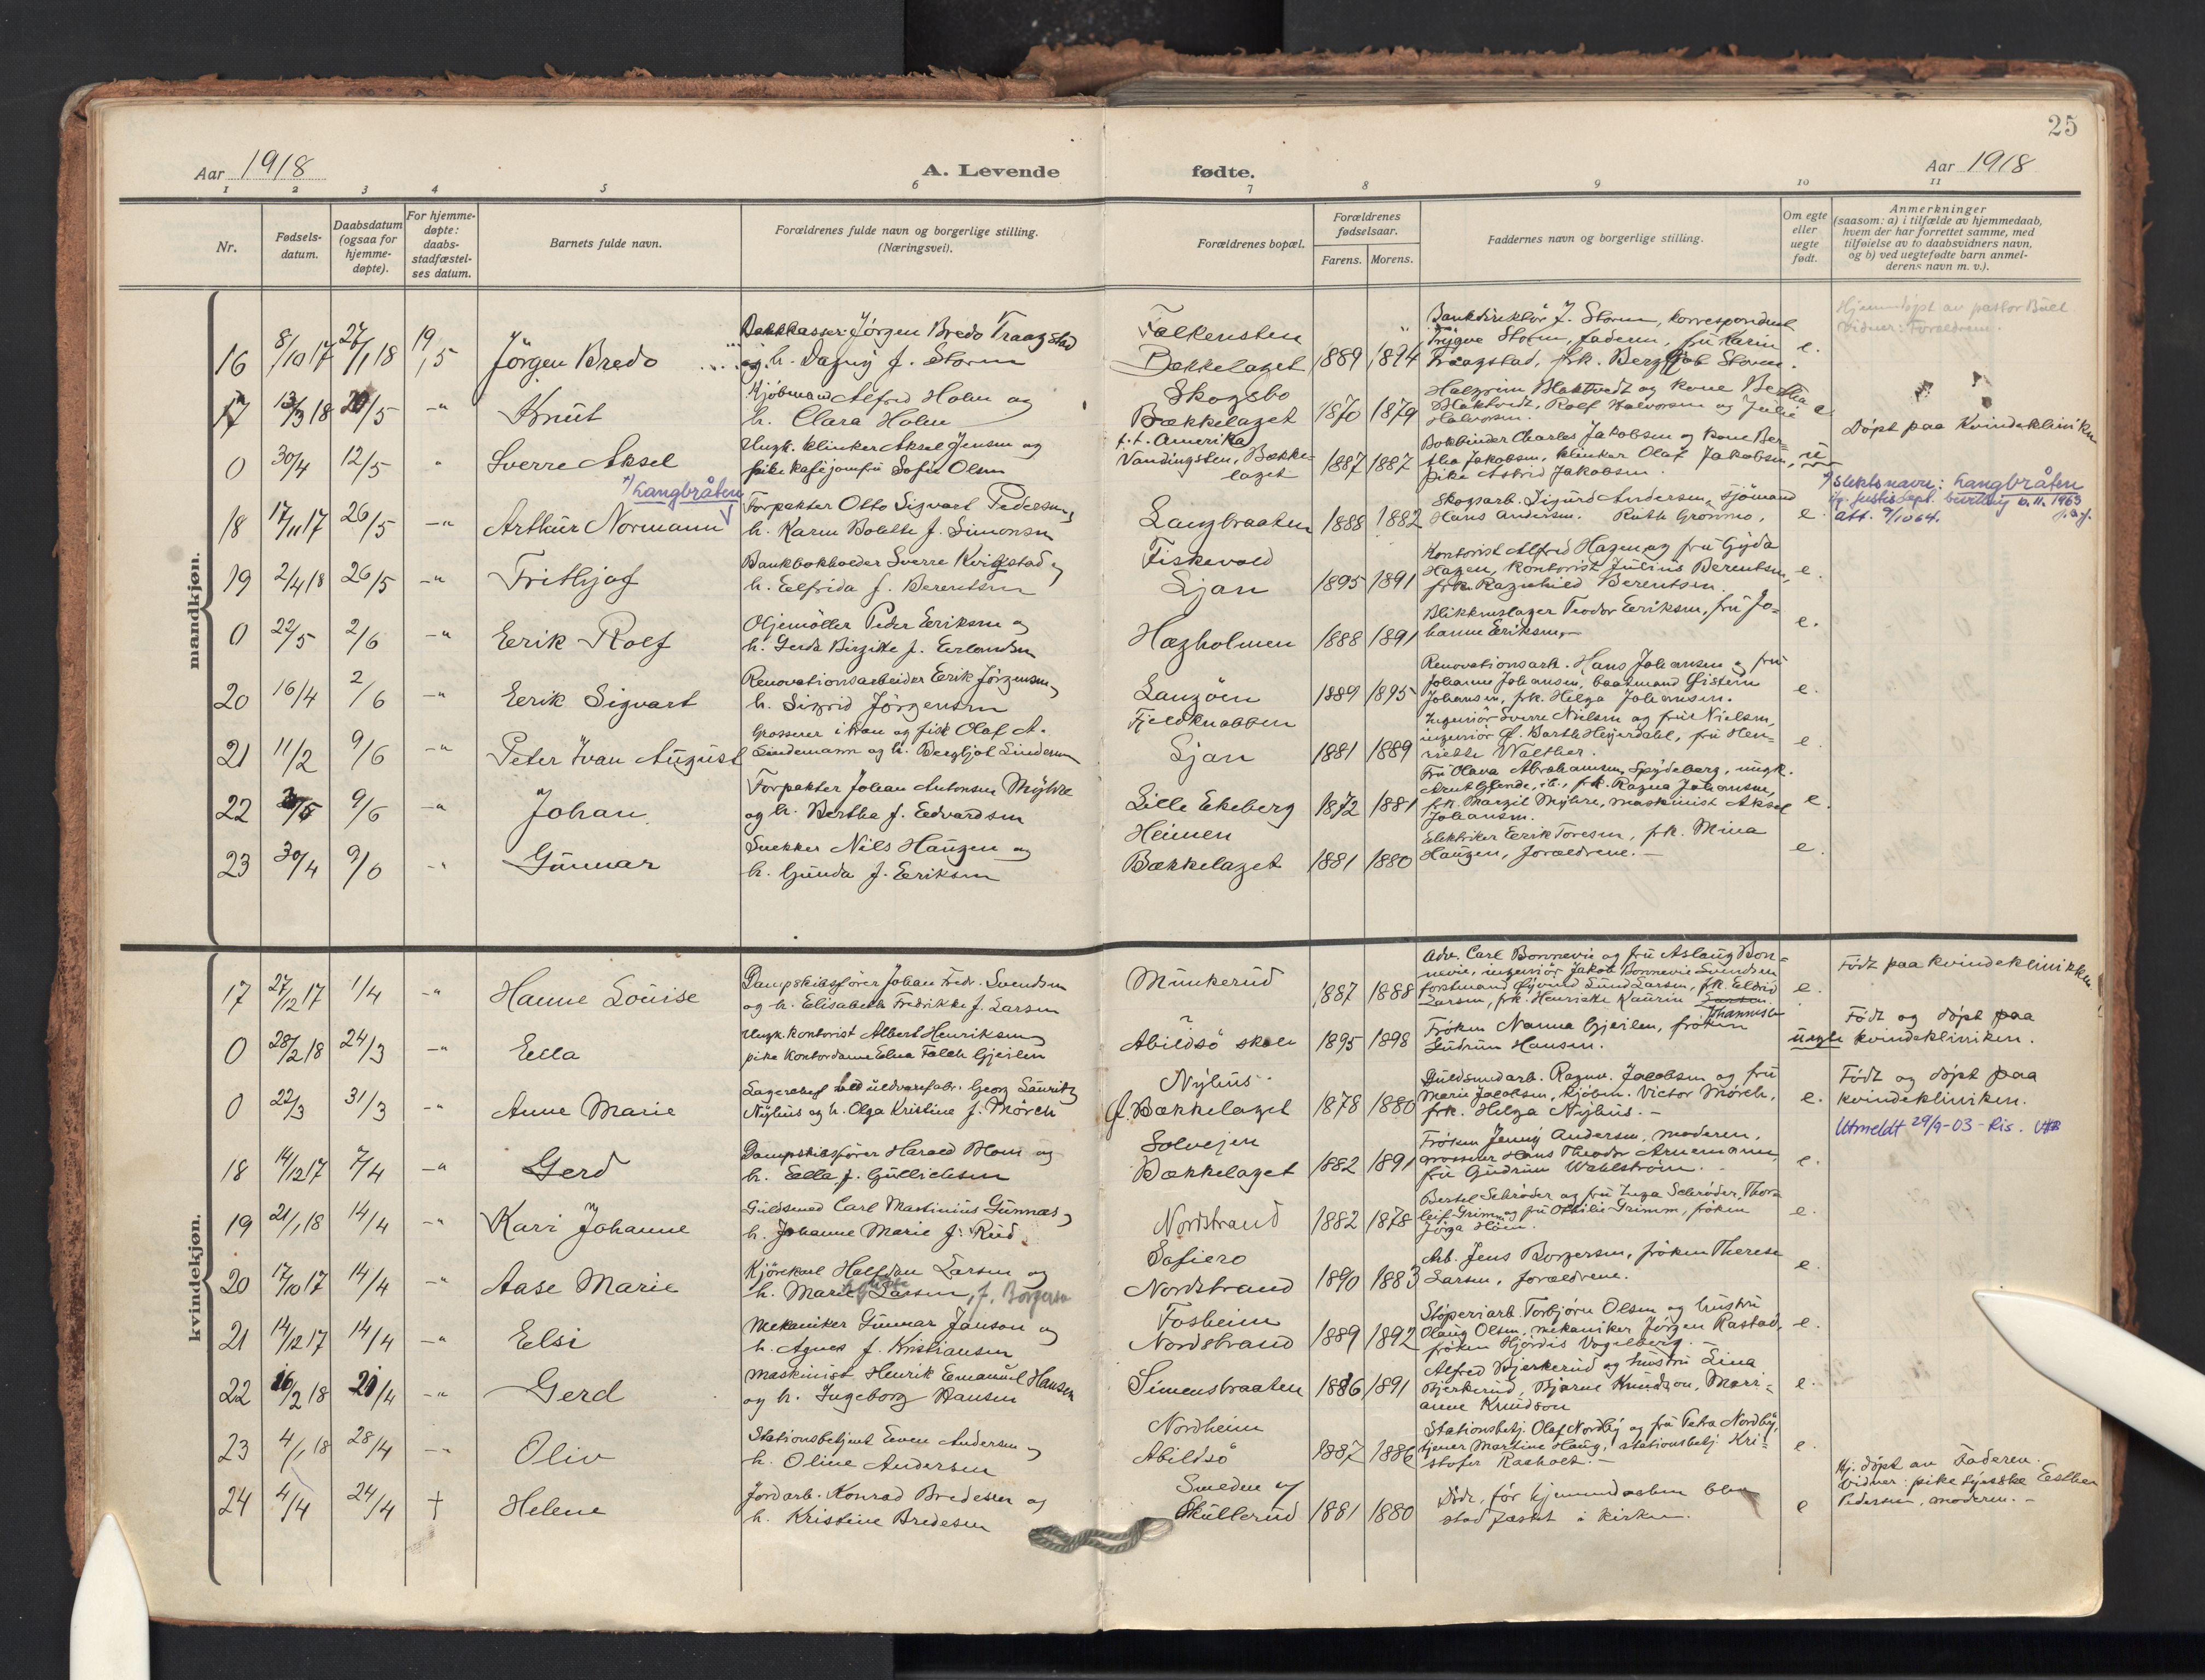 25
Aar 1918
A. Levende fødte.
Aar 1918
1 2 3 4 5 6 7 8 9 10 11
Nr.
Fødsels-
datum.
Daabsdatum
(ogsaa for
hjemme-
døpte).
For hjemme-
døpte:
daabs-
stadfæstel-
ses datum.
Barnets fulde navn.
Forældrenes fulde navn og borgerlige stilling.
(Næringsvei).
Forældrenes bopæl.
Forældrenes
fødselsaar.
Farens. Morens.
Faddernes navn og borgerlige stilling.
Om egte
eller
uegte
født.
Anmerkninger
(saasom: a) i tilfælde av hjemmedaab,
hvem der har forrettet samme, med
tilføielse av to daabsvidners navn,
og b) ved uegtefødte barn anmel-
derens navn m. v.).
mandkjøn.
16 8/10 17 27/1 18 19/5 Jörgen Bredo
Jörgen Bredo Traagstad
og h. Dagny f. Storm
Falkensten
Bækkelaget
1889 1894
Bankdirektör J. Storm, korrespondent
Trygve Storm, faderen, fru Karin
Traagstad, frk. Bergljot Storm.
e.
Hjemmedöpt av pastor Bull
Vidner: Forældrene.
17 13/3 18 20/5 -"- Knut
Kjöbmand Alfred Holm og
h. Clara Holm
Skogsbo
Bækkelaget
1870 1879
Halvorsen.
e
Döpt paa Kvindekliniken
0 30/4 12/5 " Sverre Aksel
Ungk. klinker Aksel Jensen og
pike kafejomfru Sofie Olsen
f. t. Amerika
Vandingsten, Bække-
laget
1887 1887
Bokbinder Charles Jakobsen og kone Ber-
tha Jakobsen, klinker Olaf Jakobsen,
pike Astrid Jakobsen.
u
18 17/11 17 26/5 -"- Arthur Normann
x) Langbråten
Forpakter Otto Sigvart Pedersen og
h. Karen Bolette f. Simonsen
Langbraaten
1888 1882
Skogsarb. Sigurd Andersen, sjömand
Hans Andersen. Ruth Grönmo.
e.
x) Slektsnavn: Langbråten
19 2/4 18 26/5 -"- Frithjof
Bankbokholder Sverre Kvigstad og
h. Elfrida f. Berentsen
Fiskevold
Ljan
1895 1891
Kontorist Alfred Hagen og fru Gyda
Hagen, kontorist Julius Berentsen,
frk. Ragnhild Berentsen.
e.
0 22/5 2/6 -"- Eerik Rolf
Oljemöller Peder Eeriksen og
h. Gerda Birgitte f. Erlandsen
Hægholmen
1888 1891
Blikkenslager Teodor Eeriksen, fru Jo-
hanne Eeriksen.
e.
20 16/4 2/6 -"- Eerik Sigvart
Renovationsarbeider Eerik Jörgensen og
h. Sigrid Jörgensen
Langöen
1889 1895
Renovationsarb. Hans Johansen og fru
Johanne Johansen, baatmand Øistein
Johansen, frk. Helga Johansen.
e.
21 11/2 9/6 -"- Peter Ivan August
Grosserer i tran og fisk Olaf A.
Lindemann og h. Bergljot Lindemann
Fjeldknabben
Ljan
1881 1889
Ingeniör Sverre Nielsen og fru Nielsen,
ingeniör Barth Heyerdahl, fru Hen-
riette Walther.
e.
22 9/6 -"- Johan
Forpakter Johan Antonsen Myhre
og h. Berthe f. Eedvardsen
Lille Ekeberg
1872 1881
Fru Olava Abrahamsen, Spydeberg, ungk.
frk. Ragna Johansen,
frk. Margit Myhre, maskinist Aksel
Johansen.
e.
23 30/4 9/6 -"- Gunnar
Snekker Nils Haugen og
h. Gunda f. Eeriksen
Heimen
Bækkelaget
1881 1880
Elektriker Eerik Toresen, frk. Mina
Haugen, forældrene.
e.
kvindekjøn.
17 27/12 17 1/4 -"- Hanne Louise
Dampskibsförer Johan Fredr. Svendsen
og h. Elisabeth Fredrikke f. Larsen
Munkerud
1887 1888
Adv. Carl Bonnevie og fru Aslaug Bon-
nevie, ingeniör Jakob Bonnevie Svendsen
forstmand Øjvind Lund Larsen, frk. Eldrid
Larsen, frk. Henriette Kaurin
e.
Födt paa kvindeklinikken
0 28/2 18 24/3 -"- Eella
Ungk. kontorist Albert Henriksen og
pike kontordame Elna Falch Gjeilen
Abildsö skole
1895 1898
Fröken Nanna Gjeilen, fröken
Gudrun Hansen.
uegte
Födt og döpt paa
kvindekliniken.
0 22/3 31/3 -"- Anne Marie
Lagerchef ved uldvarefabr. Georg Lauritz
Nyhus og h. Olga Kristine f. Mörch
Nyhus.
Bækkelaget
1878 1880
Guldsmedarb. Ragnv. Jacobsen og fru
Marie Jacobsen, kjöbm. Victor Mörch,
frk. Helga Nyhus.
e.
Födt og döpt paa
kvindekliniken.
Utmeldt 29/9-03 - Ris.
18 14/12 17 7/4 -"- Gerd
Dampskibsförer Harald Moni og
h. Eella f. Gullichsen
Solvejen
Bækkelaget
1882 1891
Fröken Jenny Andersen, moderen,
grosserer Hans Theodor Arnemann,
fru Gudrun Wahlström.
e.
19 21/1 18 14/4 -"- Kari Johanne
Guldsmed Carl Martinius Gunnæs og
h. Johanne Marie f. Rud
Nordstrand
1882 1878
Bertel Schröder og fru Inga Schröder, Thor-
leif Grimm og fru Othilie Grimm, fröken
e.
20 17/10 17 14/4 -"- Aase Marie
Kjörekarl Halfdan Larsen og
h. Marie Larsen, f. Borgersen
Sofiero
Nordstrand
1890 1883
Arb. Jens Borgersen, fröken Therese
Larsen, forældrene.
e.
21 14/12 17 14/4 -"- Elsi
Mekaniker Gunnar Janson og
h. Agnes f. Kristiansen
Fosheim
Nordstrand
1889 1892
Stöperiarb. Torbjörn Olsen og hustru
Olaug Olsen, mekaniker Jörgen Rastad,
fröken Hjördis Vogelberg.
e.
22 16/2 18 21/4 -"- Gerd
Maskinist Henrik Emanuel Hansen
og h. Ingeborg Hansen
Simensbraaten
1886 1891
Alfred Bjerkerud og hustru Lina
Bjerkerud, Bjarne Knudson, Mari-
anne Knudson
e.
23 4/1 18 28/4 -"- Oliv
Stationsbetjent Even Andersen og
h. Oline Andersen
Nordheim
Abildsö
1887 1886
Stationsbetj. Olaf Nordby og fru Petra Nordby,
tjener Martine Haug, stationsbetj. Kri-
stofer Rasholt.
e.
24 4/4 24/4 † Helene
Jordarb. Konrad Bredesen og
h. Kristine Bredesen
Smeden og
Skullerud
1881 1880
Död, för hjemmedaaben blev
stadfæstet i kirken.
e
Hj. döpt av Faderen.
Vidner: pike Esther
Pedersen, moderen.